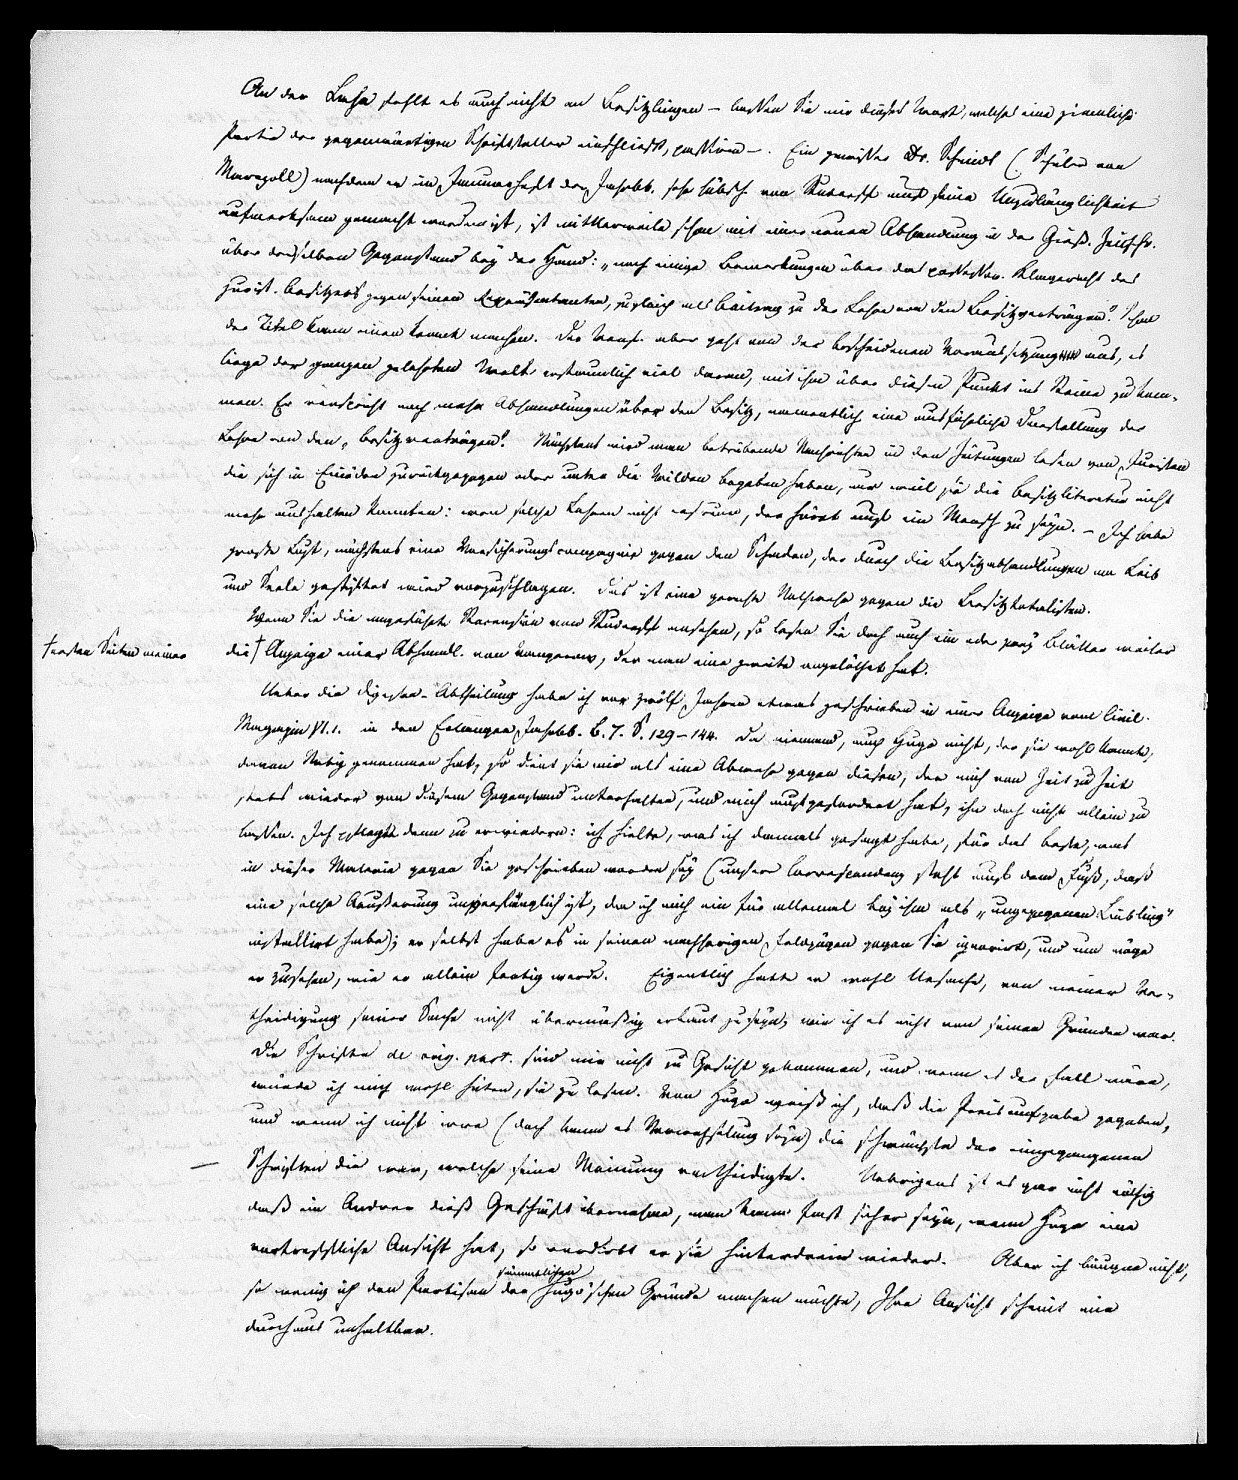 An der Lahn fehlt es auch nicht an Besitzlingen – lassen Sie mir dieses Wort, welches eine ziemliche
Partie der gegenwärtigen Schriftsteller einschließt, passiren –. Ein gewisser Dr. Schmidt (Schüler von
Marezoll) nachdem er im Januarheft der Jahrbb. sehr hübsch von Rudorff auf seine Unzulänglichkeit
aufmerksam gemacht worden ist, ist mittlerweile schon mit einer neuen Abhandlung in der Gieß. Zeitschr.
über denselben Gegenstand bey der Hand: „noch einige Bemerkungen über das possessor. Klagerecht des
jurist. Besitzers gegen seinen Repräsentanten, zugleich als Beitrag zu der Lehre von den Besitzverträgen". Schon
der Titel kann einen krank machen. Der Verf. aber geht von der bescheidenen Voraussetzung aus, es
liege der ganzen gelehrten Welt erstaunlich viel daran, mit ihm über diesen Punkt ins Reine zu kom-
men. Er verspricht noch mehr Abhandlungen über den Besitz, namentlich eine ausführliche Darstellung der
Lehre von den „Besitzverträgen". Nächstens wird man betrübende Nachrichten in den Zeitungen lesen von Juristen
die sich in Einöden zurückgezogen oder unter die Wilden begeben haben, nur weil sie die Besitzliteratur nicht
mehr aushalten konnten: wen solche Lehren nicht erfreun, der hört auf ein Mensch zu seyn. – Ich habe
große Lust, nächstens eine Versicherungscompagnie gegen den Schaden, der durch die Besitzabhandlungen an Leib
und Seele gestiftet wird vorzuschlagen. Das ist eine gerechte Nothwehr gegen die Besitz
Wenn Sie die angeführte Recension von Rudorff ansehen, so lesen Sie doch auch ein oder zwei Blätter weiter
† ersten Seiten meiner
die † Anzeige einer Abhandl. von Vangerow, der man eine zweite angelöthet hat.
Ueber die Digesten-Abtheilung habe ich vor zwölf Jahren etwas geschrieben in einer Anzeige vom Civil.
Magazin VI. 1. in den Erlanger Jahrbb. B. 7. S. 129–144. Da niemand, auch Hugo nicht, der sie wohl kannte,
davon Notiz genommen hat, so dient sie mir als eine Abwehr gegen diesen, der mich von Zeit zu Zeit
stets wieder von diesem Gegenstand unterhalten, und mich aufgefordert hat, ihn doch nicht allein zu
lassen. Ich pflegte dann zu erwiedern: ich hielte, was ich damals gesagt habe, für das beste, was
in dieser Materie gegen Sie geschrieben worden sey (unsere Correspondenz steht auf dem Fuß, daß
eine solche Aeußerung unverfänglich ist, da ich mich ein für allemal bey ihm als „ungezogenen Liebling"
installirt habe); er selbst habe es in seinen nachherigen Feldzügen gegen Sie ignorirt, und nun möge
er zusehen, wie er allein fertig werde. Eigentlich hatte er wohl Ursache, von meiner Ver-
theidigung seiner Sache nicht übermäßig erbaut zu seyn, wie ich es nicht von seinen Gründen war.
Die Schriften de orig. poss. sind mir nicht zu Gesicht gekommen, und wenn es der Fall wäre,
würde ich mich wohl hüten, sie zu lesen. Von Hugo weiß ich, daß die Preisaufgabe gegeben,
und wenn ich nicht irre (doch kann es Verwechslung seyn) die schwächste der eingegangenen
Schriften die war, welche seine Meinung vertheidigte. Uebrigens ist es gar nicht nöthig
daß ein Andrer dieß Geschäft übernehme, man kann fast sicher seyn, wenn Hugo eine
vortreffliche Ansicht hat, so verdirbt er sie hinterdrein wieder. Aber ich läugne nicht,
so wenig ich den Partisan der sämmtlichen Hugo'schen Gründe machen möchte, Ihre Ansicht scheint mir
durchaus unhaltbar.